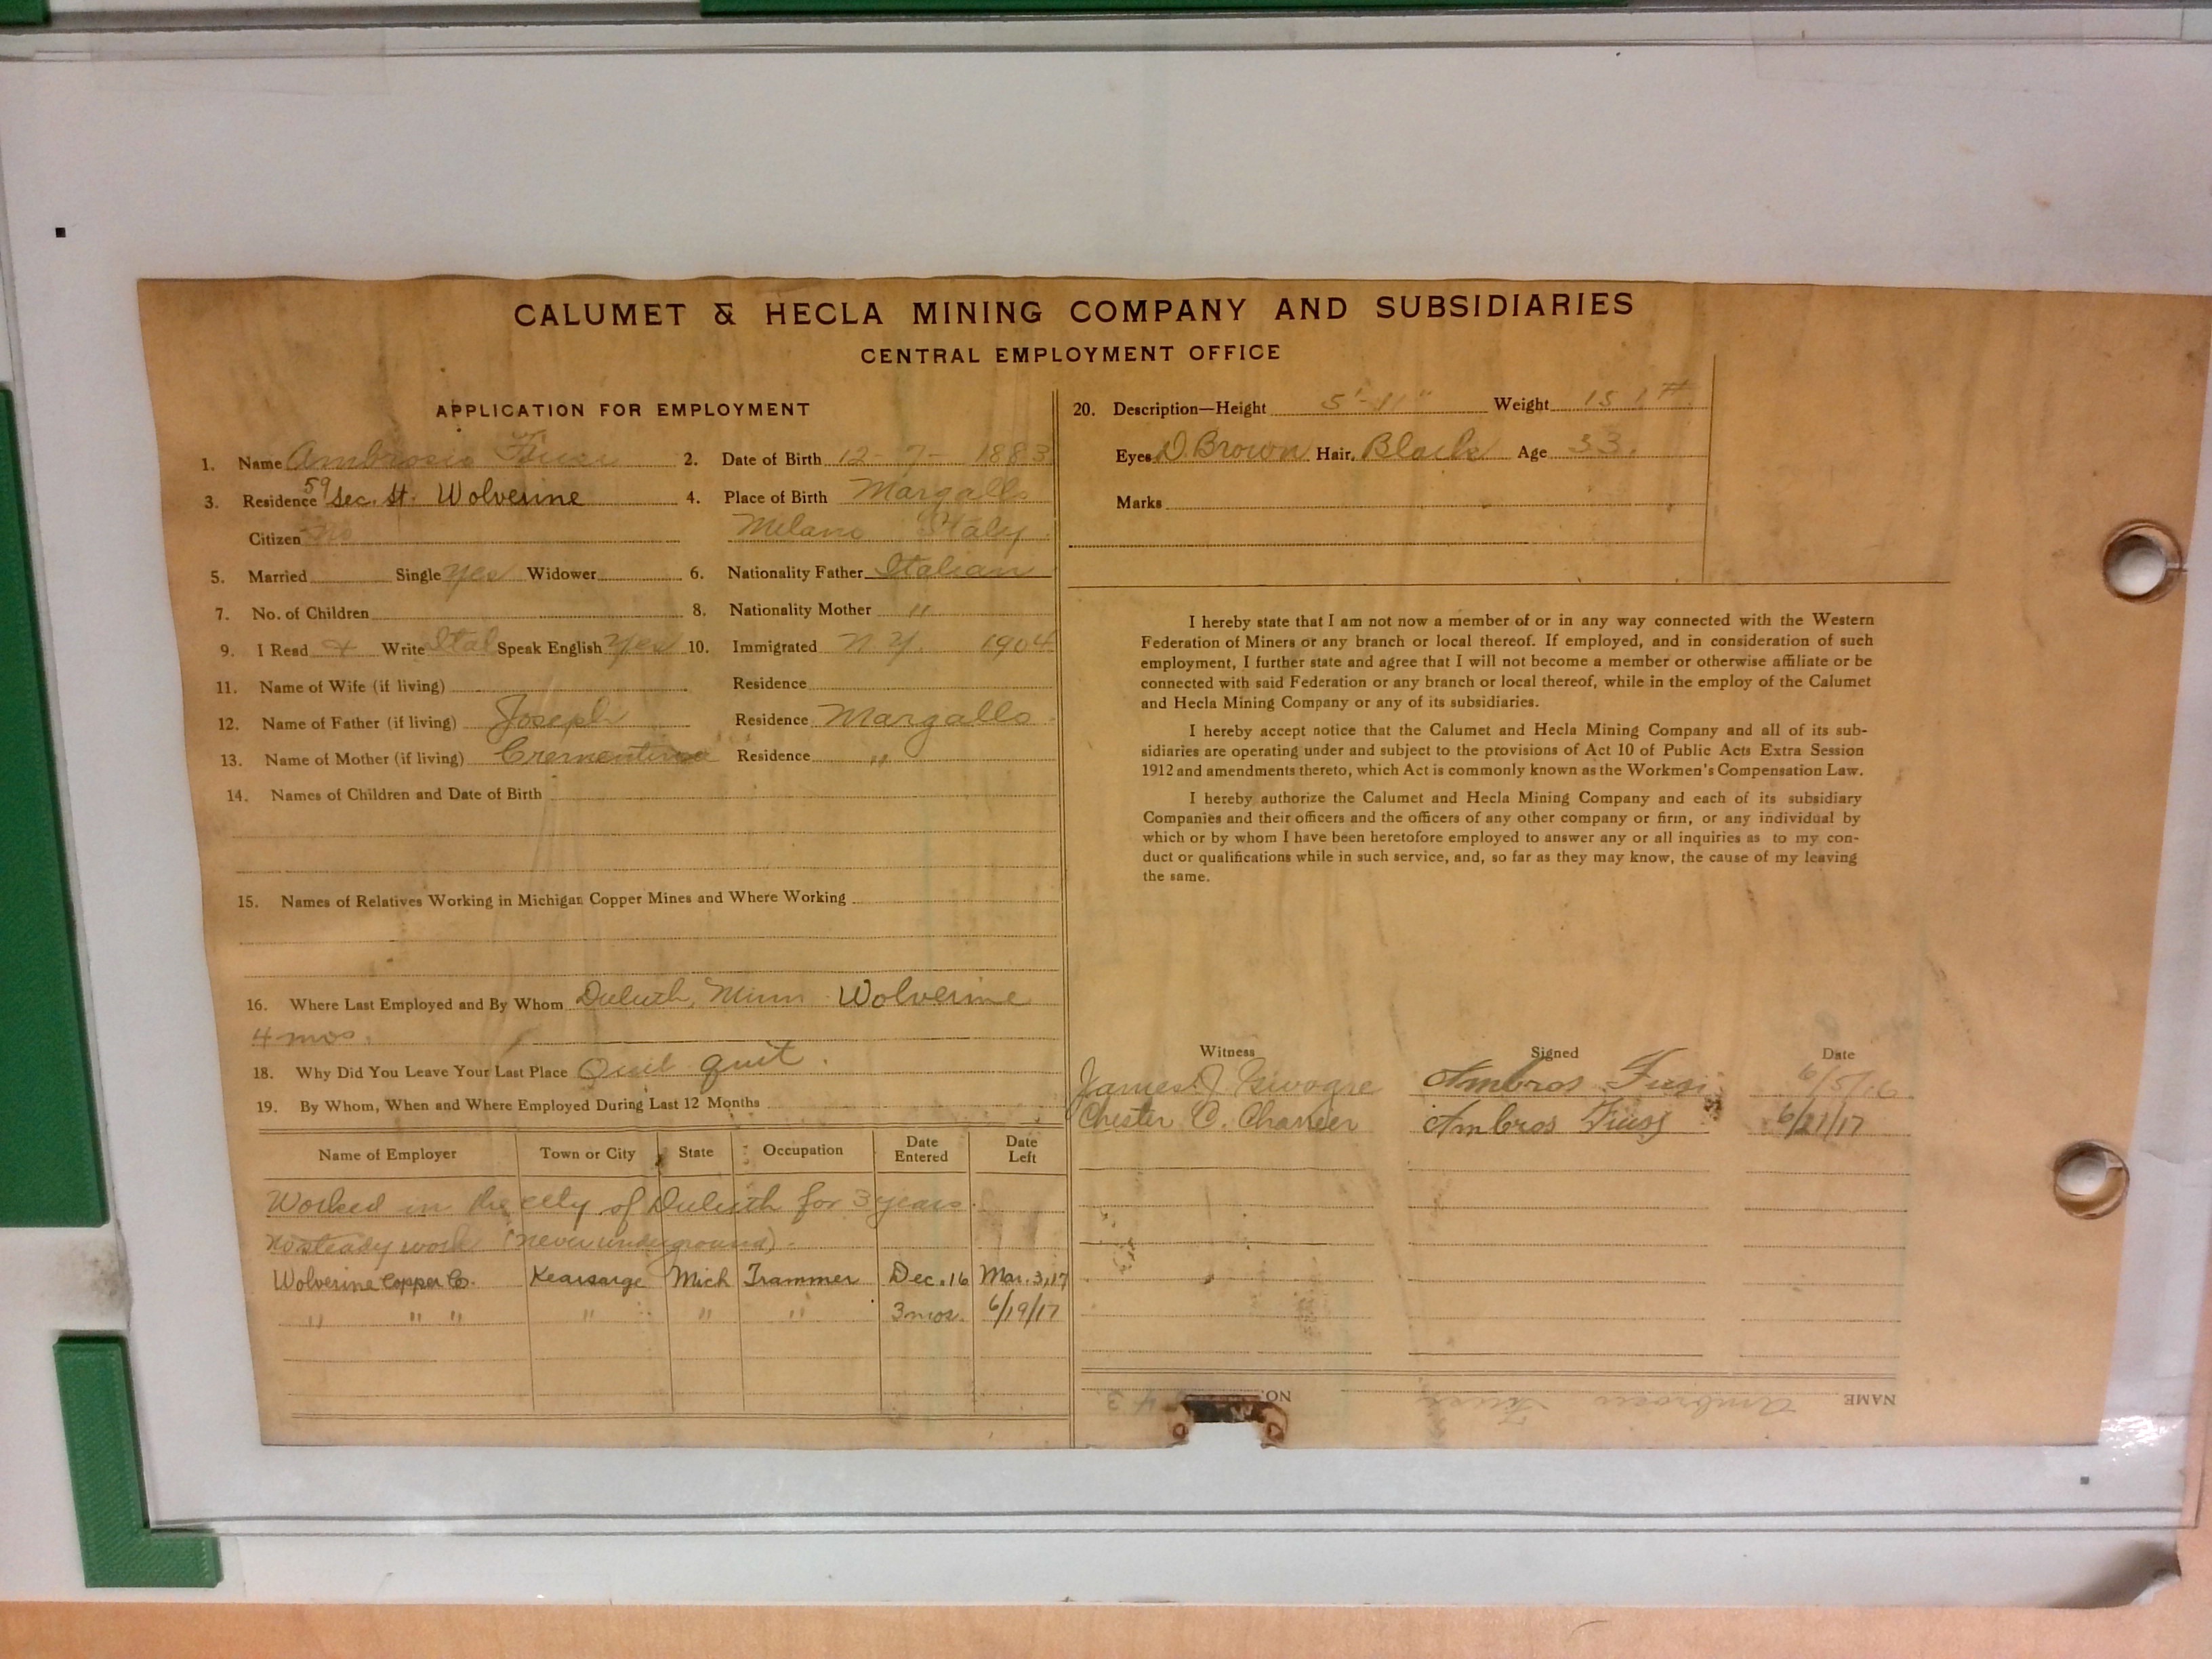 CALUMET & HECLA MINING COMPANY AND SUBSIDIARIES
CENTRAL EMPLOYMENT OFFICE
APPLICATION FOR EMPLOYMENT
1. Name Ambrosio 2. Date of Birth 12-7-1883
3. Residence 59 Sec. St. Wolverine 4. Place of Birth Margallo
Citizen No Milano Italy
5. Married Single yes Widower 6. Nationality Father Italian
7. No. of Children 8. Nationality Mother "
9. I Read + Write Ital Speak English Yes 10. Immigrated N.Y. 1904
11. Name of Wife (if living) Residence
12. Name of Father (if living) Joseph Residence Margallo
13. Name of Mother (if living) Crementina Residence "
14. Names of Children and Date of Birth
15. Names of Relatives Working in Michigan Copper Mines and Where Working
16. Where Last Employed and By Whom Duluth, Minn Wolverine
4 mos.
18. Why Did You Leave Your Last Place Quit quit.
19. By Whom, When and Where Employed During Last 12 Months
Name of Employer Town or City State Occupation Date Entered Date Left
Worked in the city of Duluth for 3 years.
No steady work (never underground).
Wolverine Copper Co. Kearsarge Mich Trammer Dec. 16 Mar. 3, 17
" " " " " " 3 mos. 6/19/17
20. Description—Height 5'-11" Weight 151#
Eyes D. Brown Hair, Black Age 33.
Marks
I hereby state that I am not now a member of or in any way connected with the Western
Federation of Miners or any branch or local thereof. If employed, and in consideration of such
employment, I further state and agree that I will not become a member or otherwise affiliate or be
connected with said Federation or any branch or local thereof, while in the employ of the Calumet
and Hecla Mining Company or any of its subsidiaries.
I hereby accept notice that the Calumet and Hecla Mining Company and all of its sub-
sidiaries are operating under and subject to the provisions of Act 10 of Public Acts Extra Session
1912 and amendments thereto, which Act is commonly known as the Workmen's Compensation Law.
I hereby authorize the Calumet and Hecla Mining Company and each of its subsidiary
Companies and their officers and the officers of any other company or firm, or any individual by
which or by whom I have been heretofore employed to answer any or all inquiries as to my con-
duct or qualifications while in such service, and, so far as they may know, the cause of my leaving
the same.
Witness Signed Date
James J. Ambros Fusi 6/5/16
Chester C. Ambros 6/21/17
NAME Ambrosio NO.